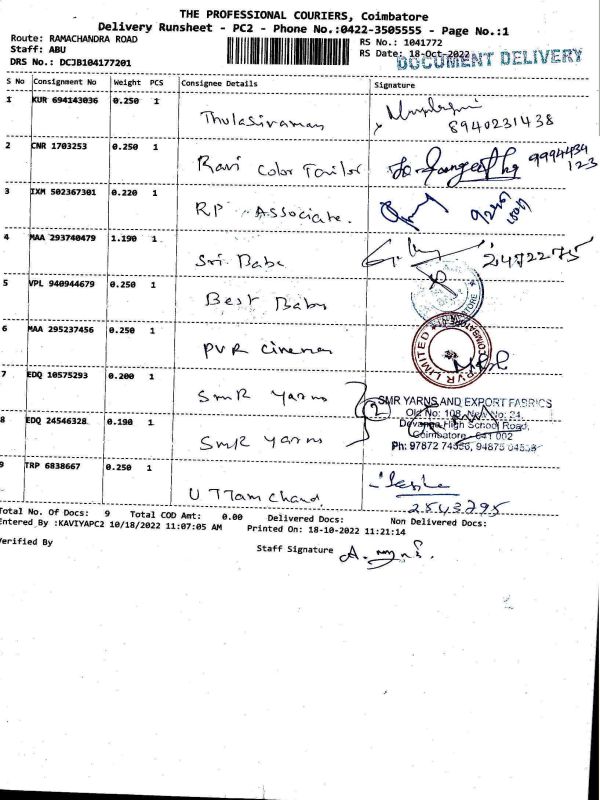 THE PROFESSIONAL COURIERS, Coimbatore
Delivery Runsheet - PC2 - Phone No.:0422-3505555 - Page No.:1
Route: RAMACHANDRA ROAD
Staff: ABU
DRS No.: DCJB104177201
RS No.: 1041772
RS Date: 18-Oct-2022
DOCUMENT DELIVERY
S No Consignment No Weight PCS Consignee Details Signature
1 KUR 694143036 0.250 1 Thulasiraman
8940231438
2 CNR 1703253 0.250 1 Ravi Color Tailor
9994434
123
3 IXM 502367301 0.220 1 RP Associate.
4 MAA 293740479 1.190 1 Sri Baba
2472275
5 VPL 940944679 0.250 1 Best Baby
6 MAA 295237456 0.250 1 PVR Cinemas
PVR LIMITED COIMBATORE
7 EDQ 10575293 0.200 1 SMR Yarns
2
SMR YARNS AND EXPORT FABRICS
Old No: 108, New No: 24,
Devanga High School Road,
Coimbatore - 641 002
Ph: 97872 74356, 94875 04538
8 EDQ 24546328 0.190 1 SMR Yarns
9 TRP 6838667 0.250 1 UTTam Chand
2543295
Total No. Of Docs: 9 Total COD Amt: 0.00 Delivered Docs: Non Delivered Docs:
Entered By :KAVIYAPC2 10/18/2022 11:07:05 AM Printed On: 18-10-2022 11:21:14
Verified By
Staff Signature